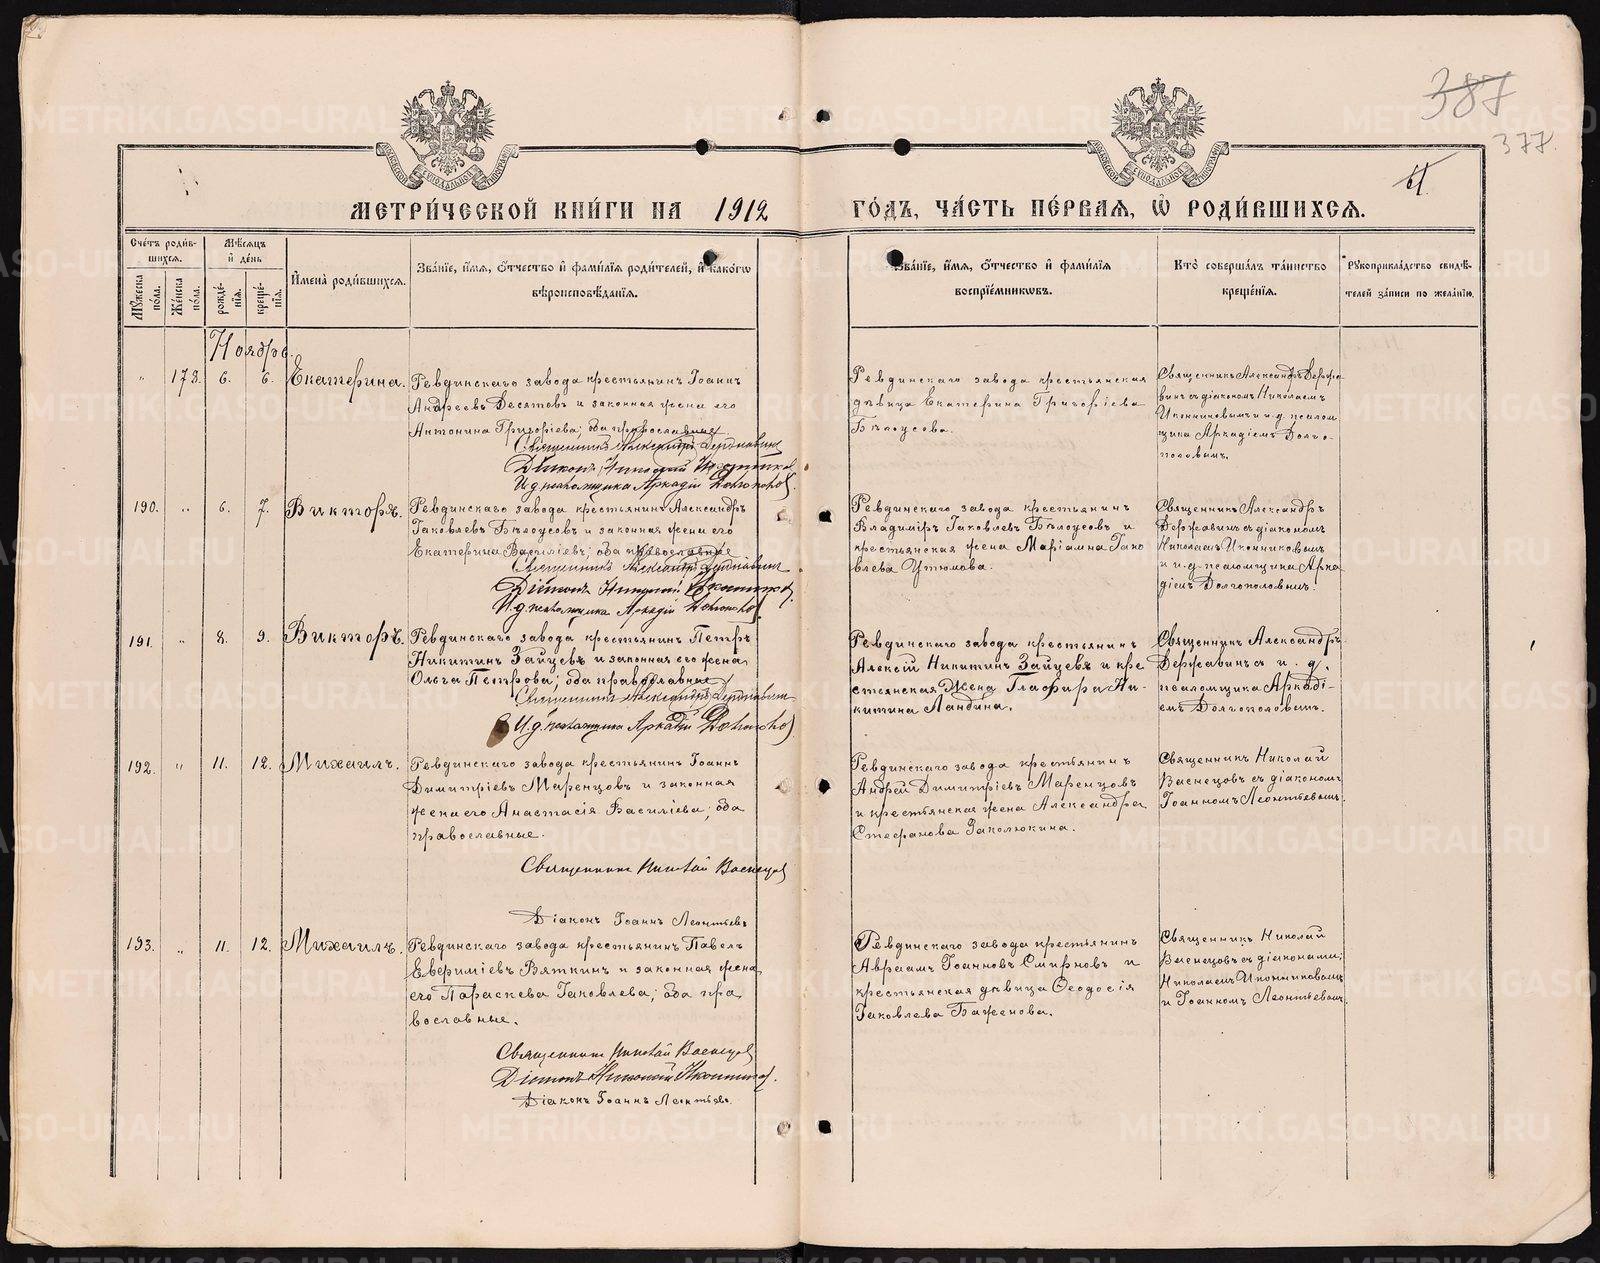 387
377.
61
МЕТРИ́ЧЕСКОЙ КНИ́ГИ НА 1912 ГО́ДЪ, ЧА́СТЬ ПЕ́РВАЯ, Ѡ РОДИ́ВШИХСЯ.
Сче́тъ роди́в-
шихся.
Мꙋ́жеска по́ла.
Же́нска по́ла.
Мѣ́сяцъ и́ де́нь
рожде́нїя.
креще́нїя.
И҆мена̀ роди́вшихся.
Зва́нїе, и҆́мя, ѻ҆́тчество и҆ фами́лїя роди́телей, и҆ како́гѡ
вѣроисповѣ́данїя.
Зва́нїе, и҆́мя, ѻ҆́тчество и҆ фами́лїя
воспрїе́мниковъ.
Кто̀ соверша́лъ та́инство
креще́нїя.
Рꙋкоприкла́дство свидѣ́-
телей за́писи по жела́нїю.
Ноябрь.
" 178. 6. 6. Екатерина.
Ревдинскаго завода крестьянинъ Іоаннъ
Андреевъ Десятовъ и законная жена его
Антонина Григоріева; оба православные.
Священникъ Александръ Державинъ
Діаконъ Николай Иконниковъ
И.д. псаломщика Аркадій Долгополовъ
Ревдинскаго завода крестьянская
дѣвица Екатерина Григоріева
Бѣлоусова.
Священникъ Александръ Держа-
винъ съ діакономъ Николаемъ
Иконниковымъ и и.д. псалом-
щика Аркадіемъ Долго-
половымъ.
190. " 6. 7. Викторъ.
Ревдинскаго завода крестьянинъ Александръ
Іаковлевъ Бѣлоусовъ и законная жена его
Екатерина Василіева; оба православные
Священникъ Александръ Державинъ
Діаконъ Николай Иконниковъ
И.д. псаломщика Аркадій Долгополовъ
Ревдинскаго завода крестьянинъ
Владиміръ Іаковлевъ Бѣлоусовъ и
крестьянская жена Маріамна Іако
влева Утюмова.
Священникъ Александръ
Державинъ съ діакономъ
Николаемъ Иконниковымъ
и и.д. псаломщика Арка
діемъ Долгополовымъ.
191. " 8. 9. Викторъ.
Ревдинскаго завода крестьянинъ Петръ
Никитинъ Зайцевъ и законная его жена
Ольга Петрова; оба православные
Священникъ Александръ Державинъ
И.д. псаломщика Аркадій Долгополовъ
Ревдинскаго завода крестьянинъ
Алексій Никитинъ Зайцевъ и кре
стьянская жена Глафира Ни-
китина Ландина.
Священникъ Александръ
Державинъ съ и. д.
псаломщика Аркаді-
емъ Долгополовымъ.
192. " 11. 12. Михаилъ.
Ревдинскаго завода крестьянинъ Іоаннъ
Димитріевъ Маренцовъ и законная
жена его Анастасія Василіева; оба
православные.
Священникъ Николай Васнецовъ
Діаконъ Іоаннъ Леонтьевъ
Ревдинскаго завода крестьянинъ
Андрей Димитріевъ Маренцовъ
и крестьянская жена Александра
Стефанова Заколюкина.
Священникъ Николай
Васнецовъ съ діакономъ
Іоанномъ Леонтьевымъ.
193. " 11. 12. Михаилъ.
Ревдинскаго завода крестьянинъ Павелъ
Евфиміевъ Вяткинъ и законная жена
его Параскева Іаковлева; оба пра
вославные.
Священникъ Николай Васнецовъ
Діаконъ Николай Иконниковъ.
Діаконъ Іоаннъ Леонтьевъ.
Ревдинскаго завода крестьянинъ
Авраамъ Іоанновъ Смирновъ и
крестьянская дѣвица Ѳеодосія
Іаковлева Баженова.
Священникъ Николай
Васнецовъ съ діаконами;
Николаемъ Иконниковымъ
и Іоанномъ Леонтьевымъ.
METRIKI.GASO-URAL.RU